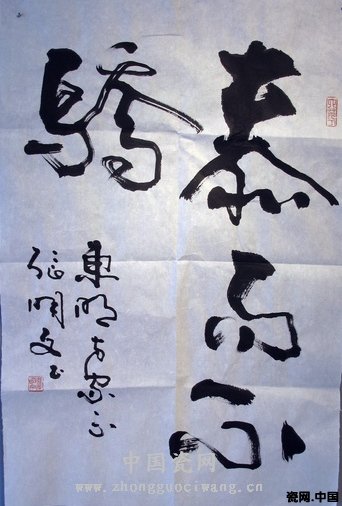 泰而不
驕
東明方家正
张明文书
中国瓷网
www.zhongguociwang.cn
瓷网.中国